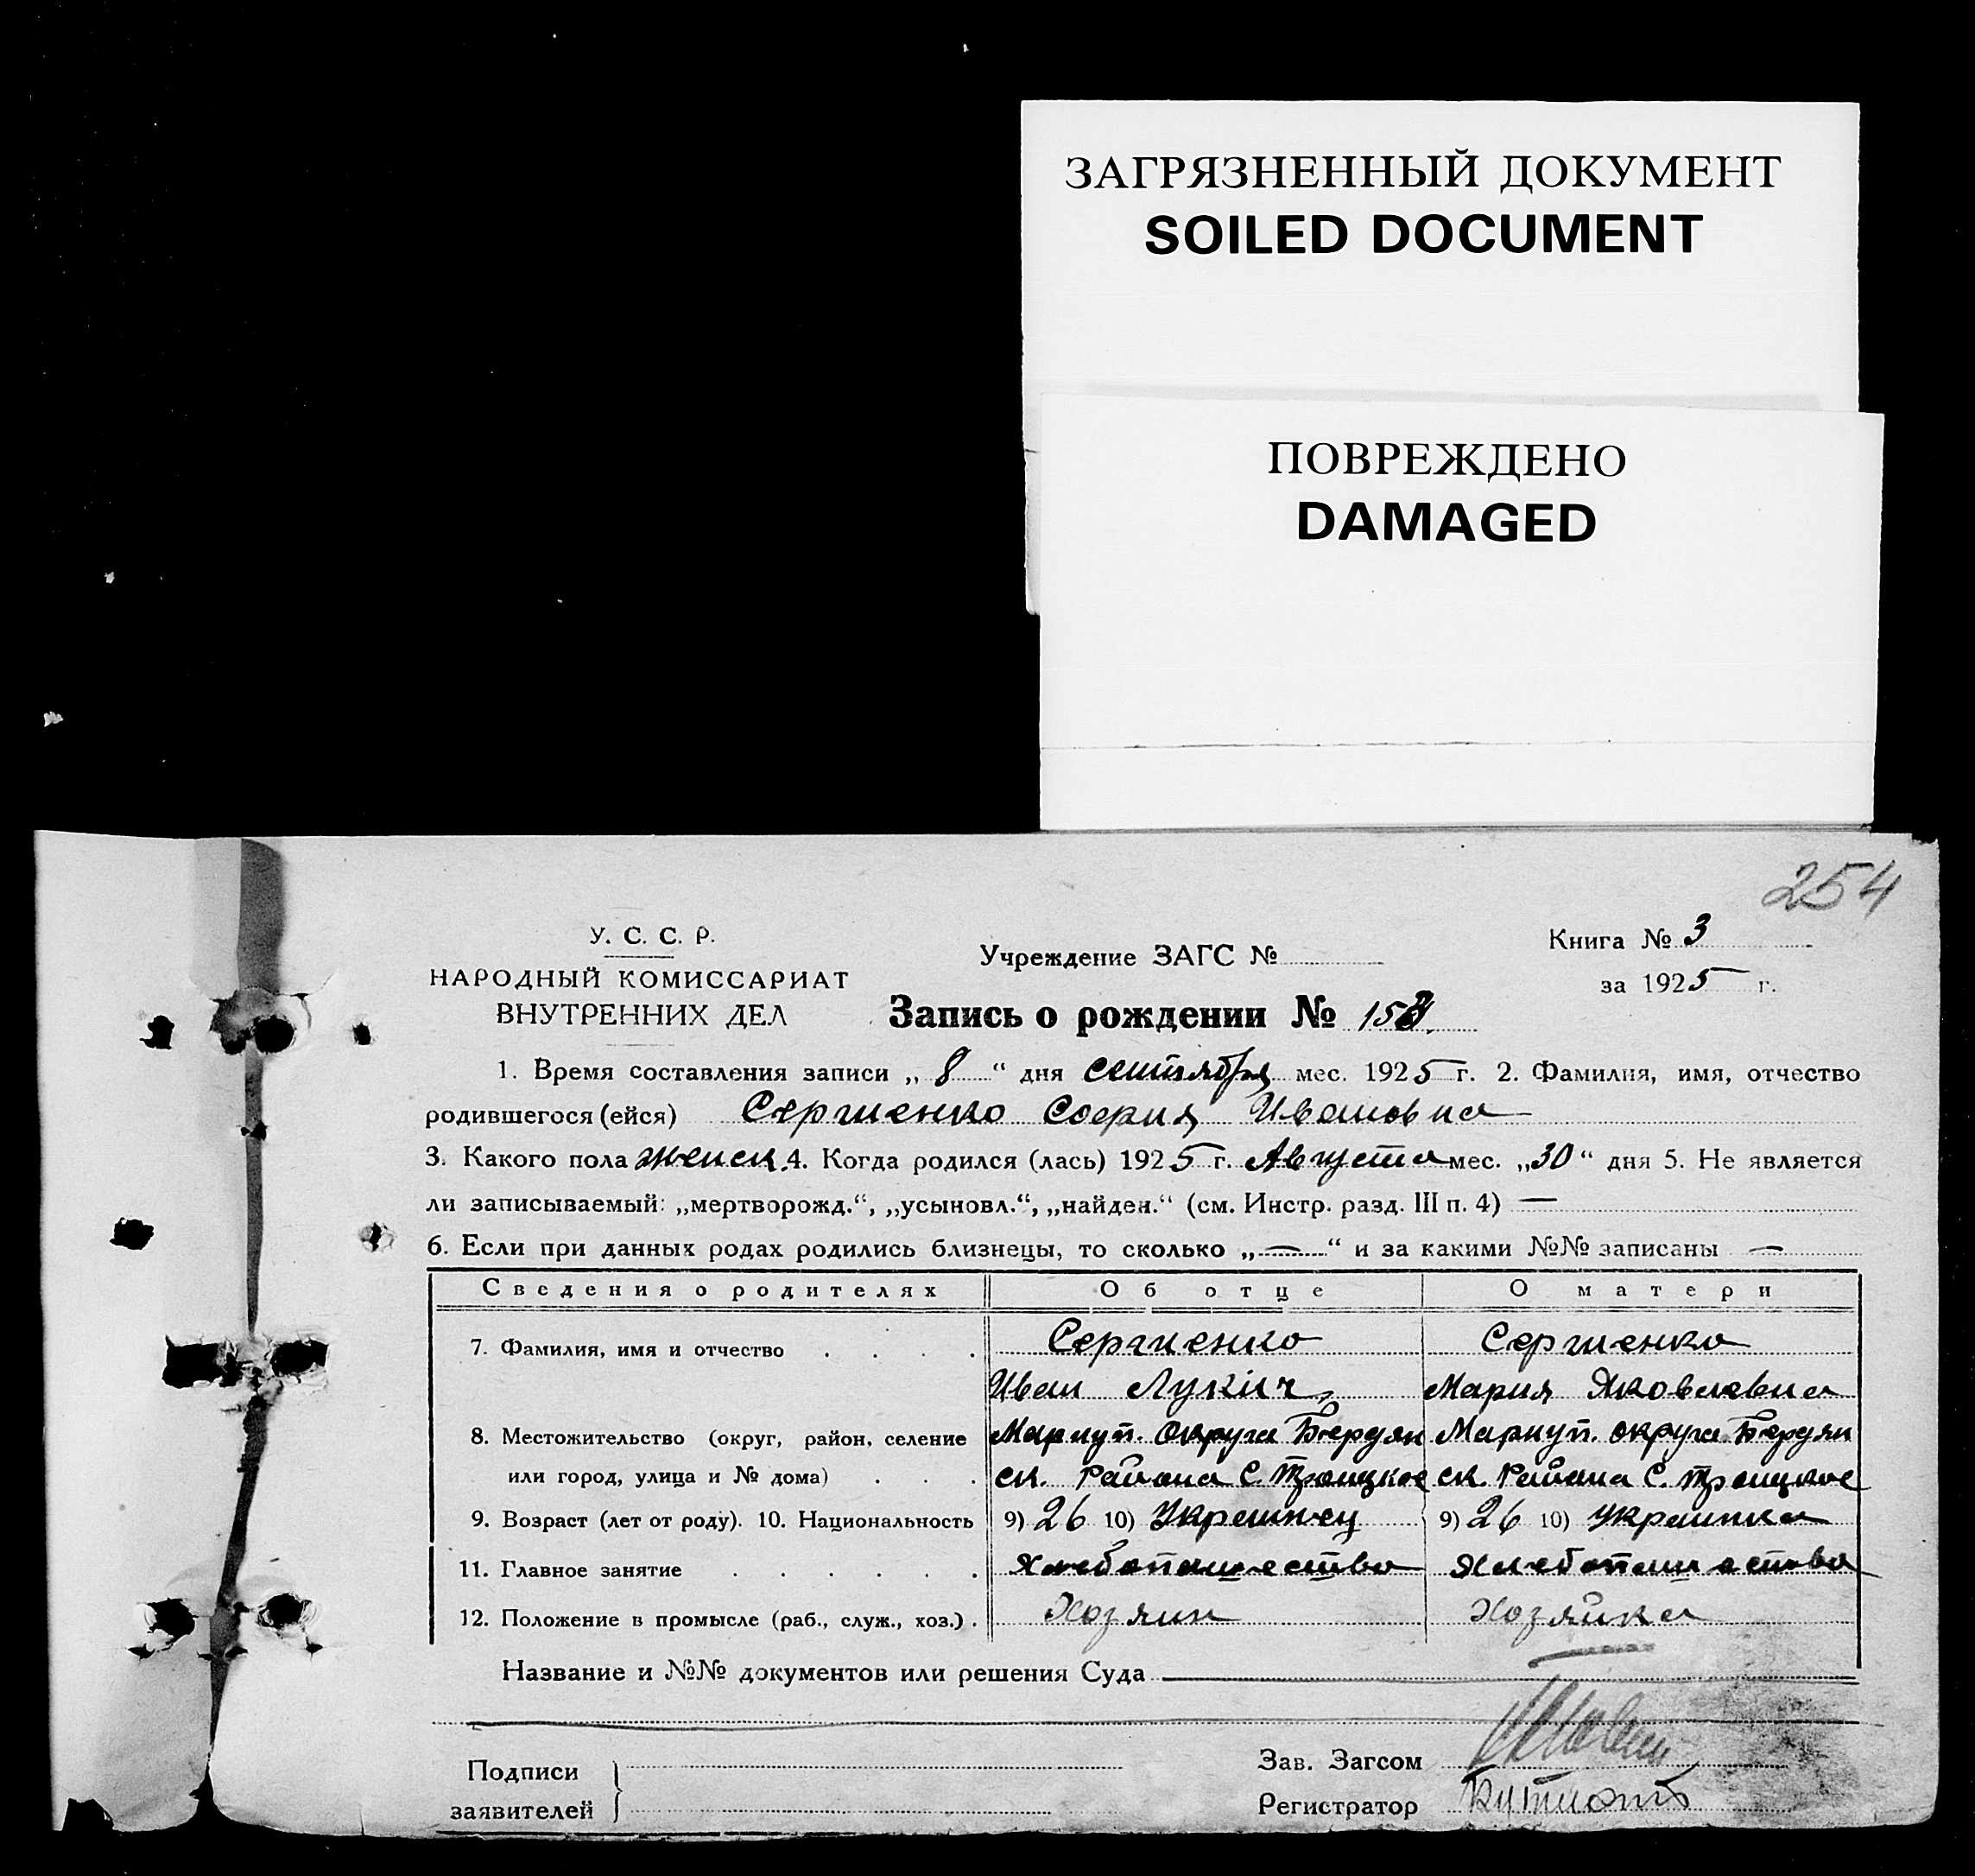 ЗАГРЯЗНЕННЫЙ ДОКУМЕНТ
SOILED DOCUMENT
ПОВРЕЖДЕНО
DAMAGED
254
У. С. С. Р.
НАРОДНЫЙ КОМИССАРИАТ
ВНУТРЕННИХ ДЕЛ
Учреждение ЗАГС №
Книга № 3
за 1925 г.
Запись о рождении №
1. Время составления записи „ 8 “ дня сентября мес. 1925 г. 2. Фамилия, имя, отчество
родившегося (ейся) Сергиенко София Ивановна
3. Какого пола женск. 4. Когда родился (лась) 1925 г. Августа мес. „30“ дня 5. Не является
ли записываемый: „мертворожд.“, „усыновл.“, „найден.“ (см. Инстр. разд. III п. 4) —
6. Если при данных родах родились близнецы, то сколько „—“ и за какими №№ записаны —
Сведения о родителях Об отце О матери
7. Фамилия, имя и отчество . . . . Сергиенко Сергиенко
Иван Лукіч Мария Яковлевна
8. Местожительство (округ, район, селение Мариуп. округа Бердян Мариуп. округа Бердян
или город, улица и № дома) . . . ск. Района С. Троицкое ск. Района С. Троицкое
9. Возраст (лет от роду). 10. Национальность 9) 26 10) Украинец 9) 26 10) Украинка
11. Главное занятие . . . . . . Хлебопашество Хлебопашество
12. Положение в промысле (раб., служ., хоз.) . Хозяин Хозяйка
Название и №№ документов или решения Суда
Подписи
заявителей
Зав. Загсом
Регистратор